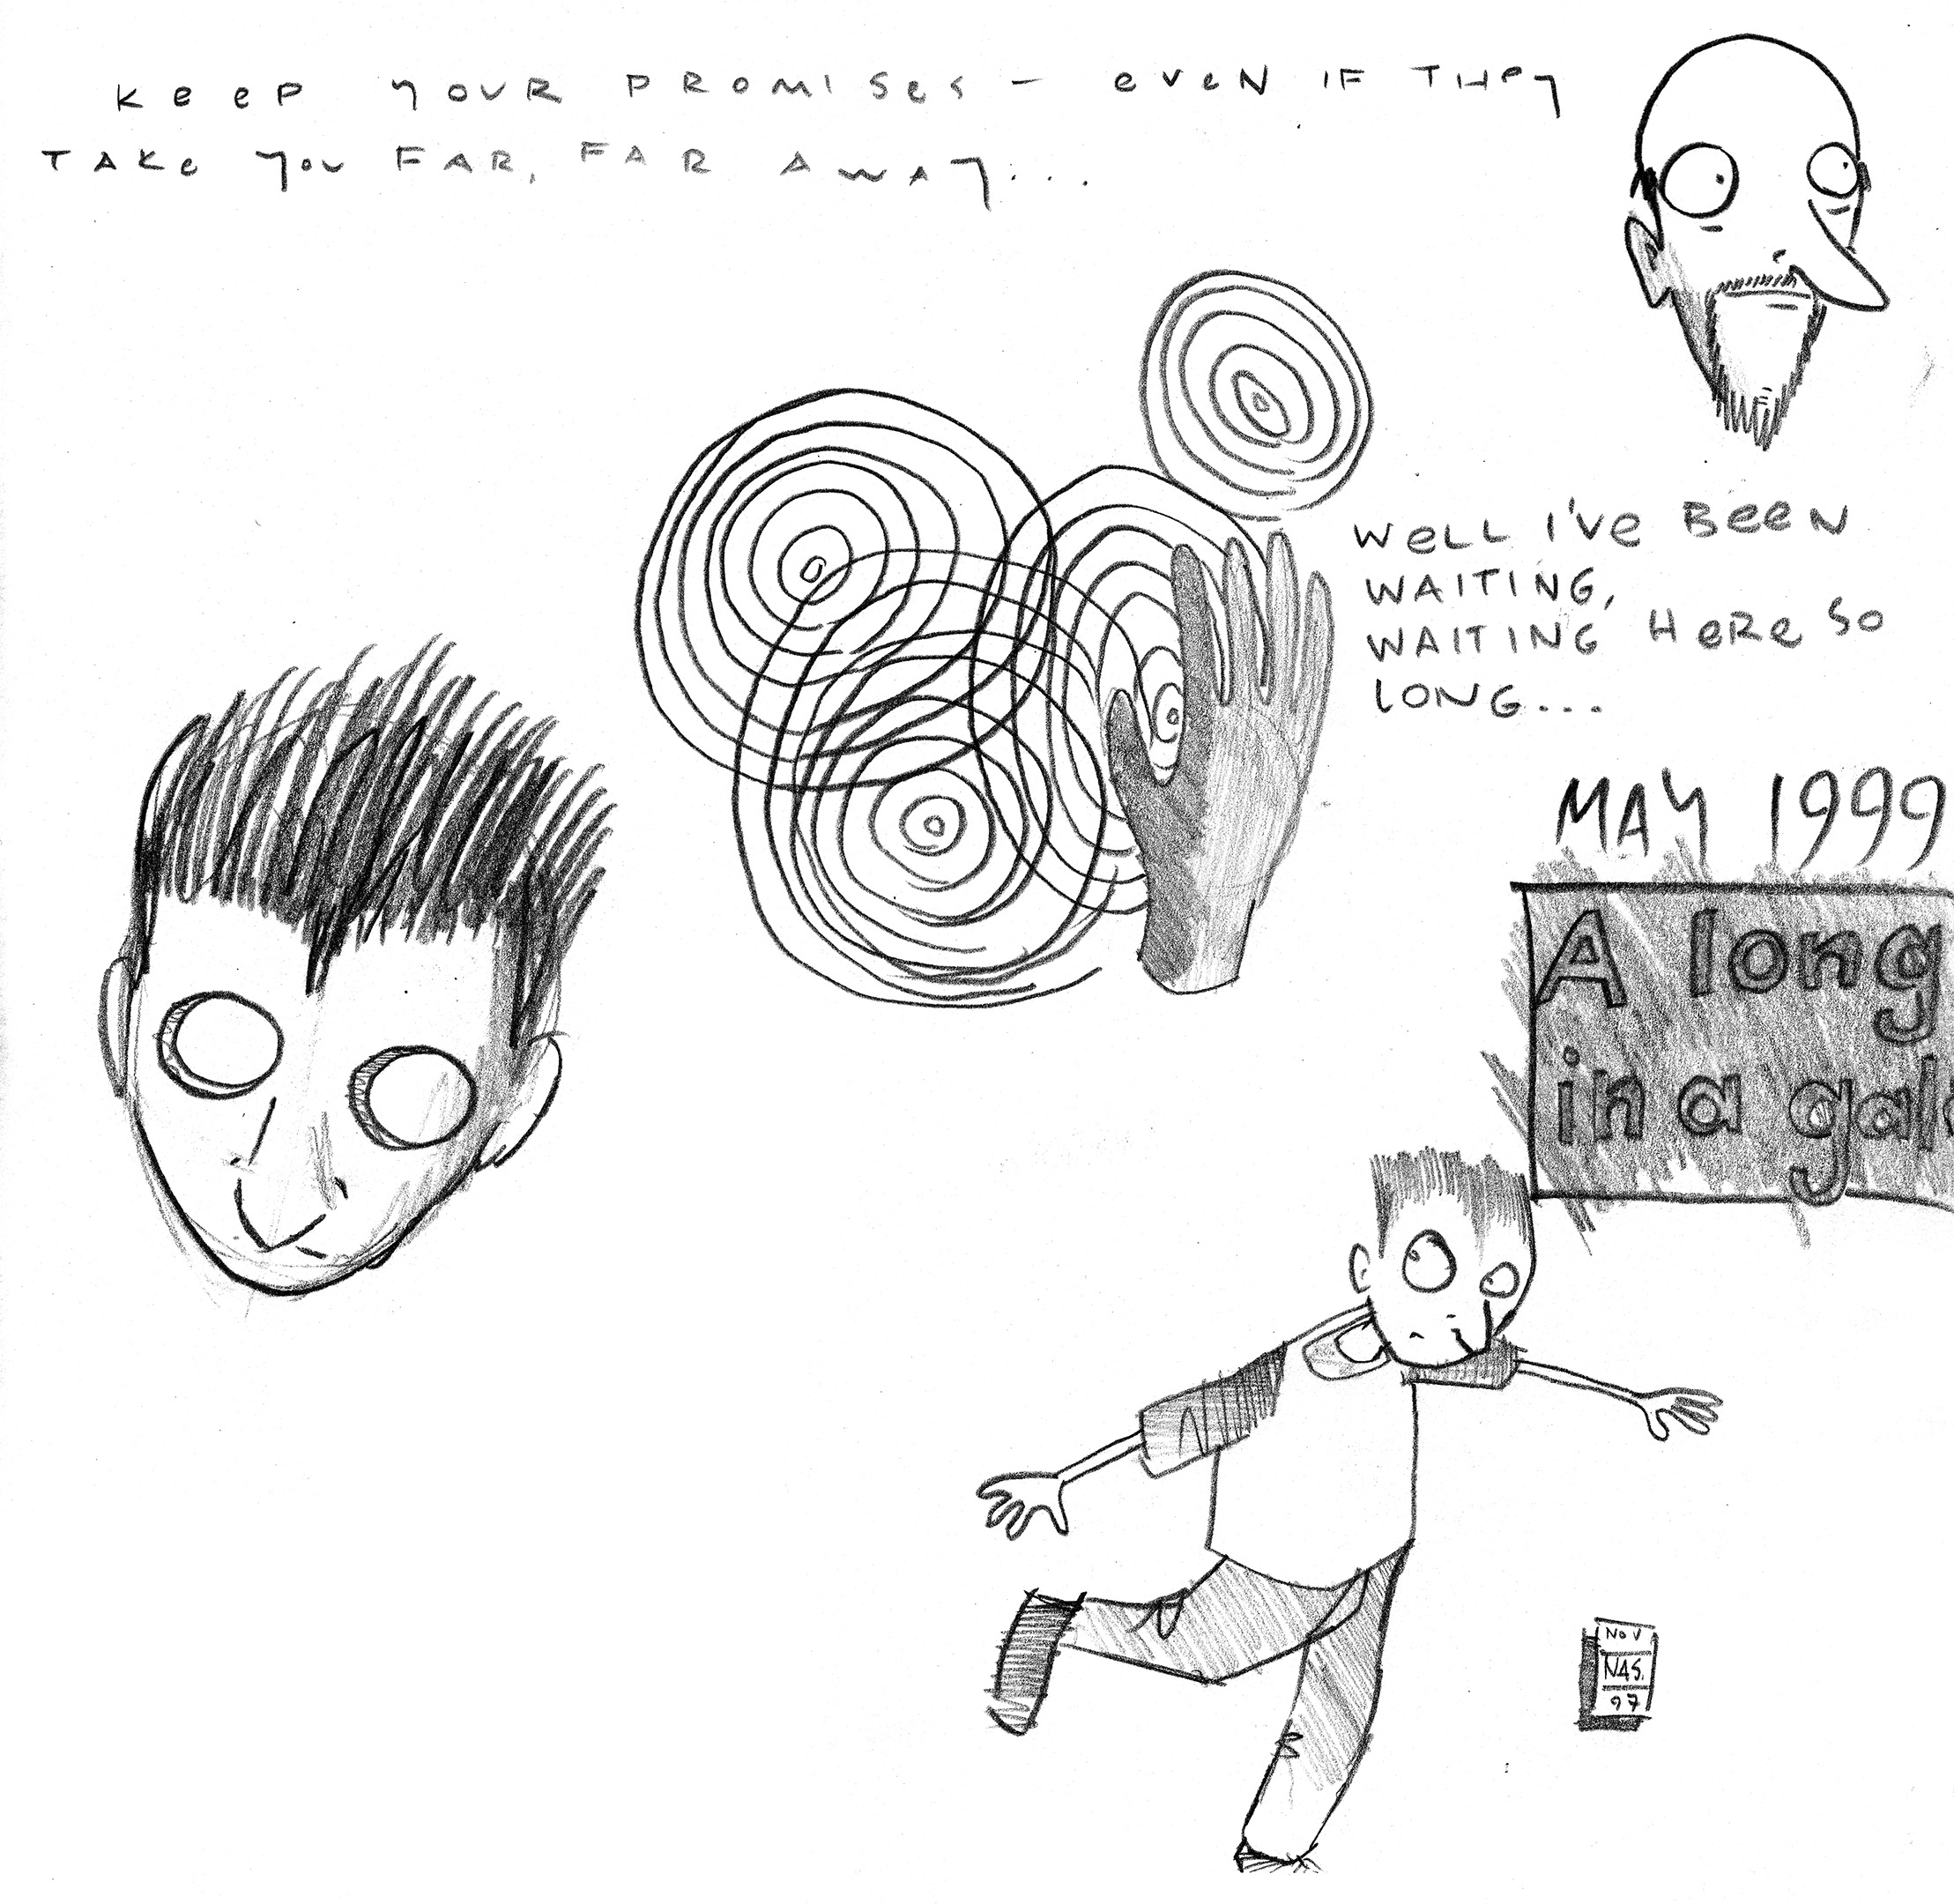 Keep YOUR PROMISES – even IF THey
TAKe you FAR, FAR AWAY...
WeLL I've Been
WAITING,
WAITING HeRe So
LONG...
MAY 1999
A long
in a gal
NOV
NAS.
97